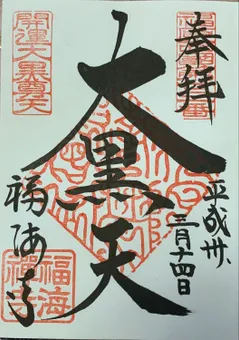 奉拝
平成卅、
三月十四日
大黒天
開運大黒尊天
福海寺
福海禅寺